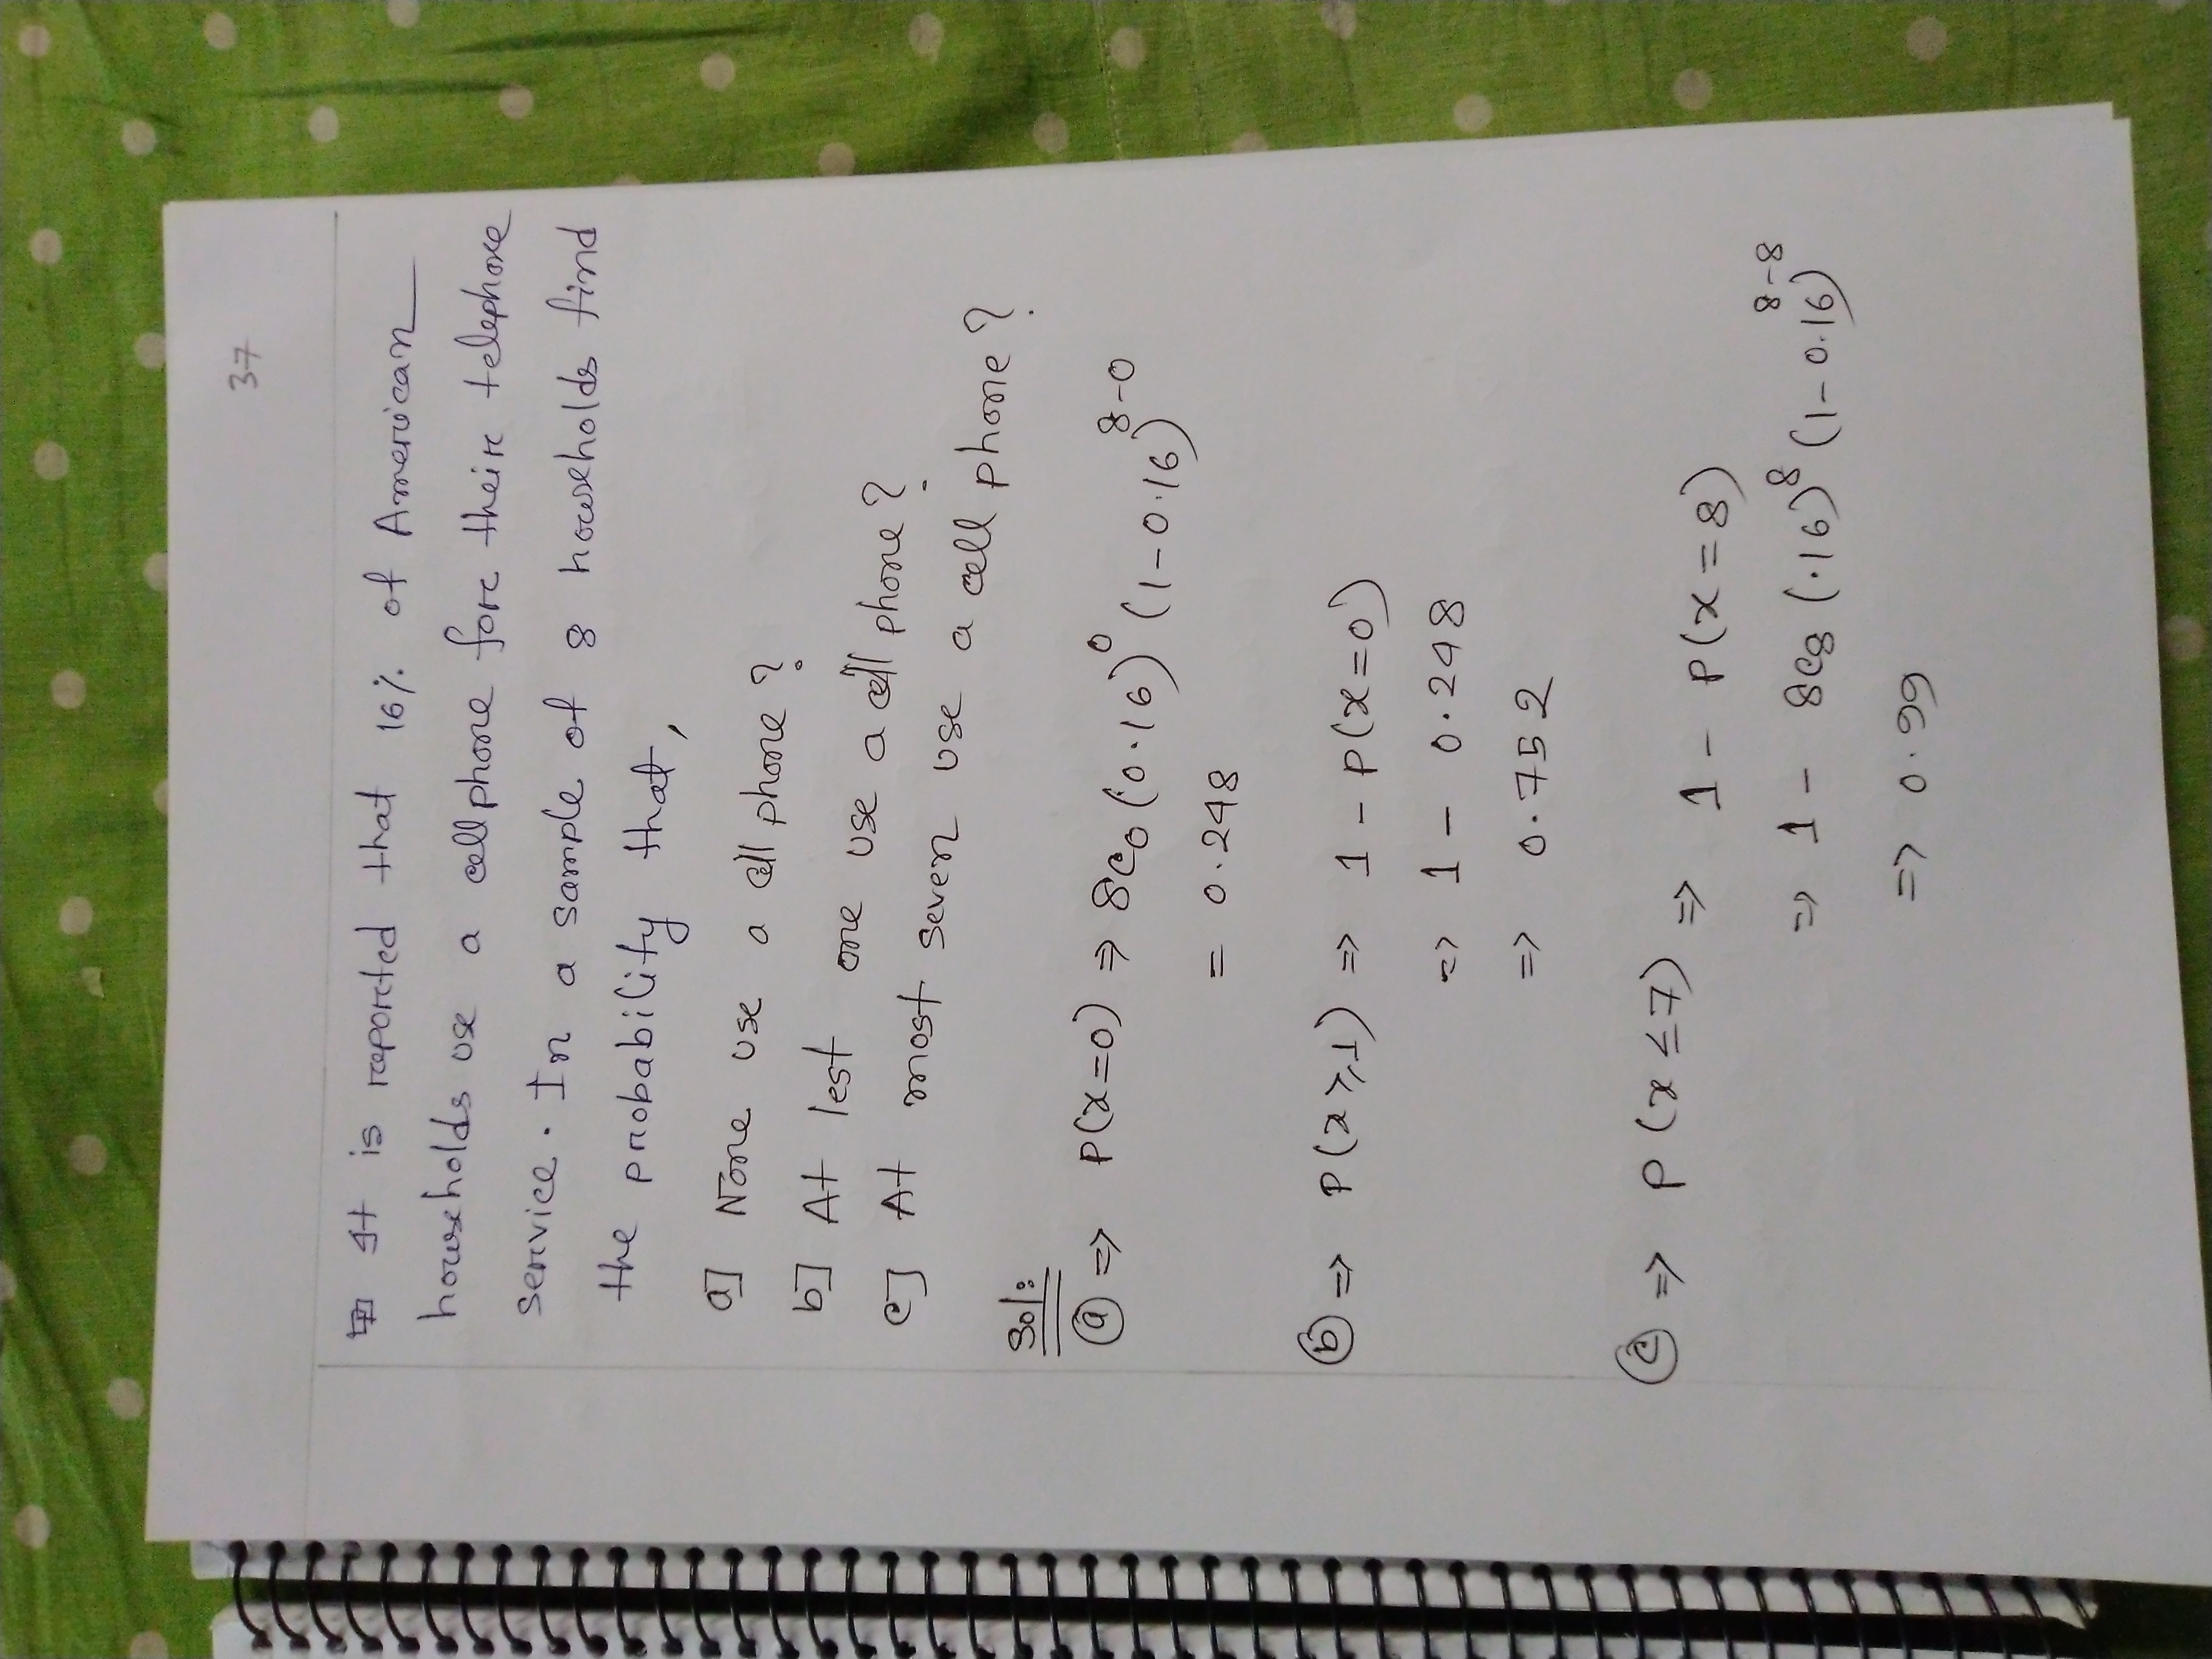 37
It is reported that 16% of American
households use a cell phone fore their telephone
service. In a sample of 8 households find
the probability that,
a] None use a cell phone?
b] At lest one use a cell phone?
c] At most seven use a cell phone?
Sol:
ⓐ ⇒ P(x=0) ⇒ 8c₀ (0.16)⁰ (1-0.16)⁸⁻⁰
= 0.248
ⓑ ⇒ P(x≥1) ⇒ 1 - P(x=0)
⇒ 1 - 0.248
⇒ 0.752
ⓒ ⇒ P(x≤7) ⇒ 1 - P(x=8)
⇒ 1 - 8c₈ (.16)⁸ (1-0.16)⁸⁻⁸
⇒ 0.99